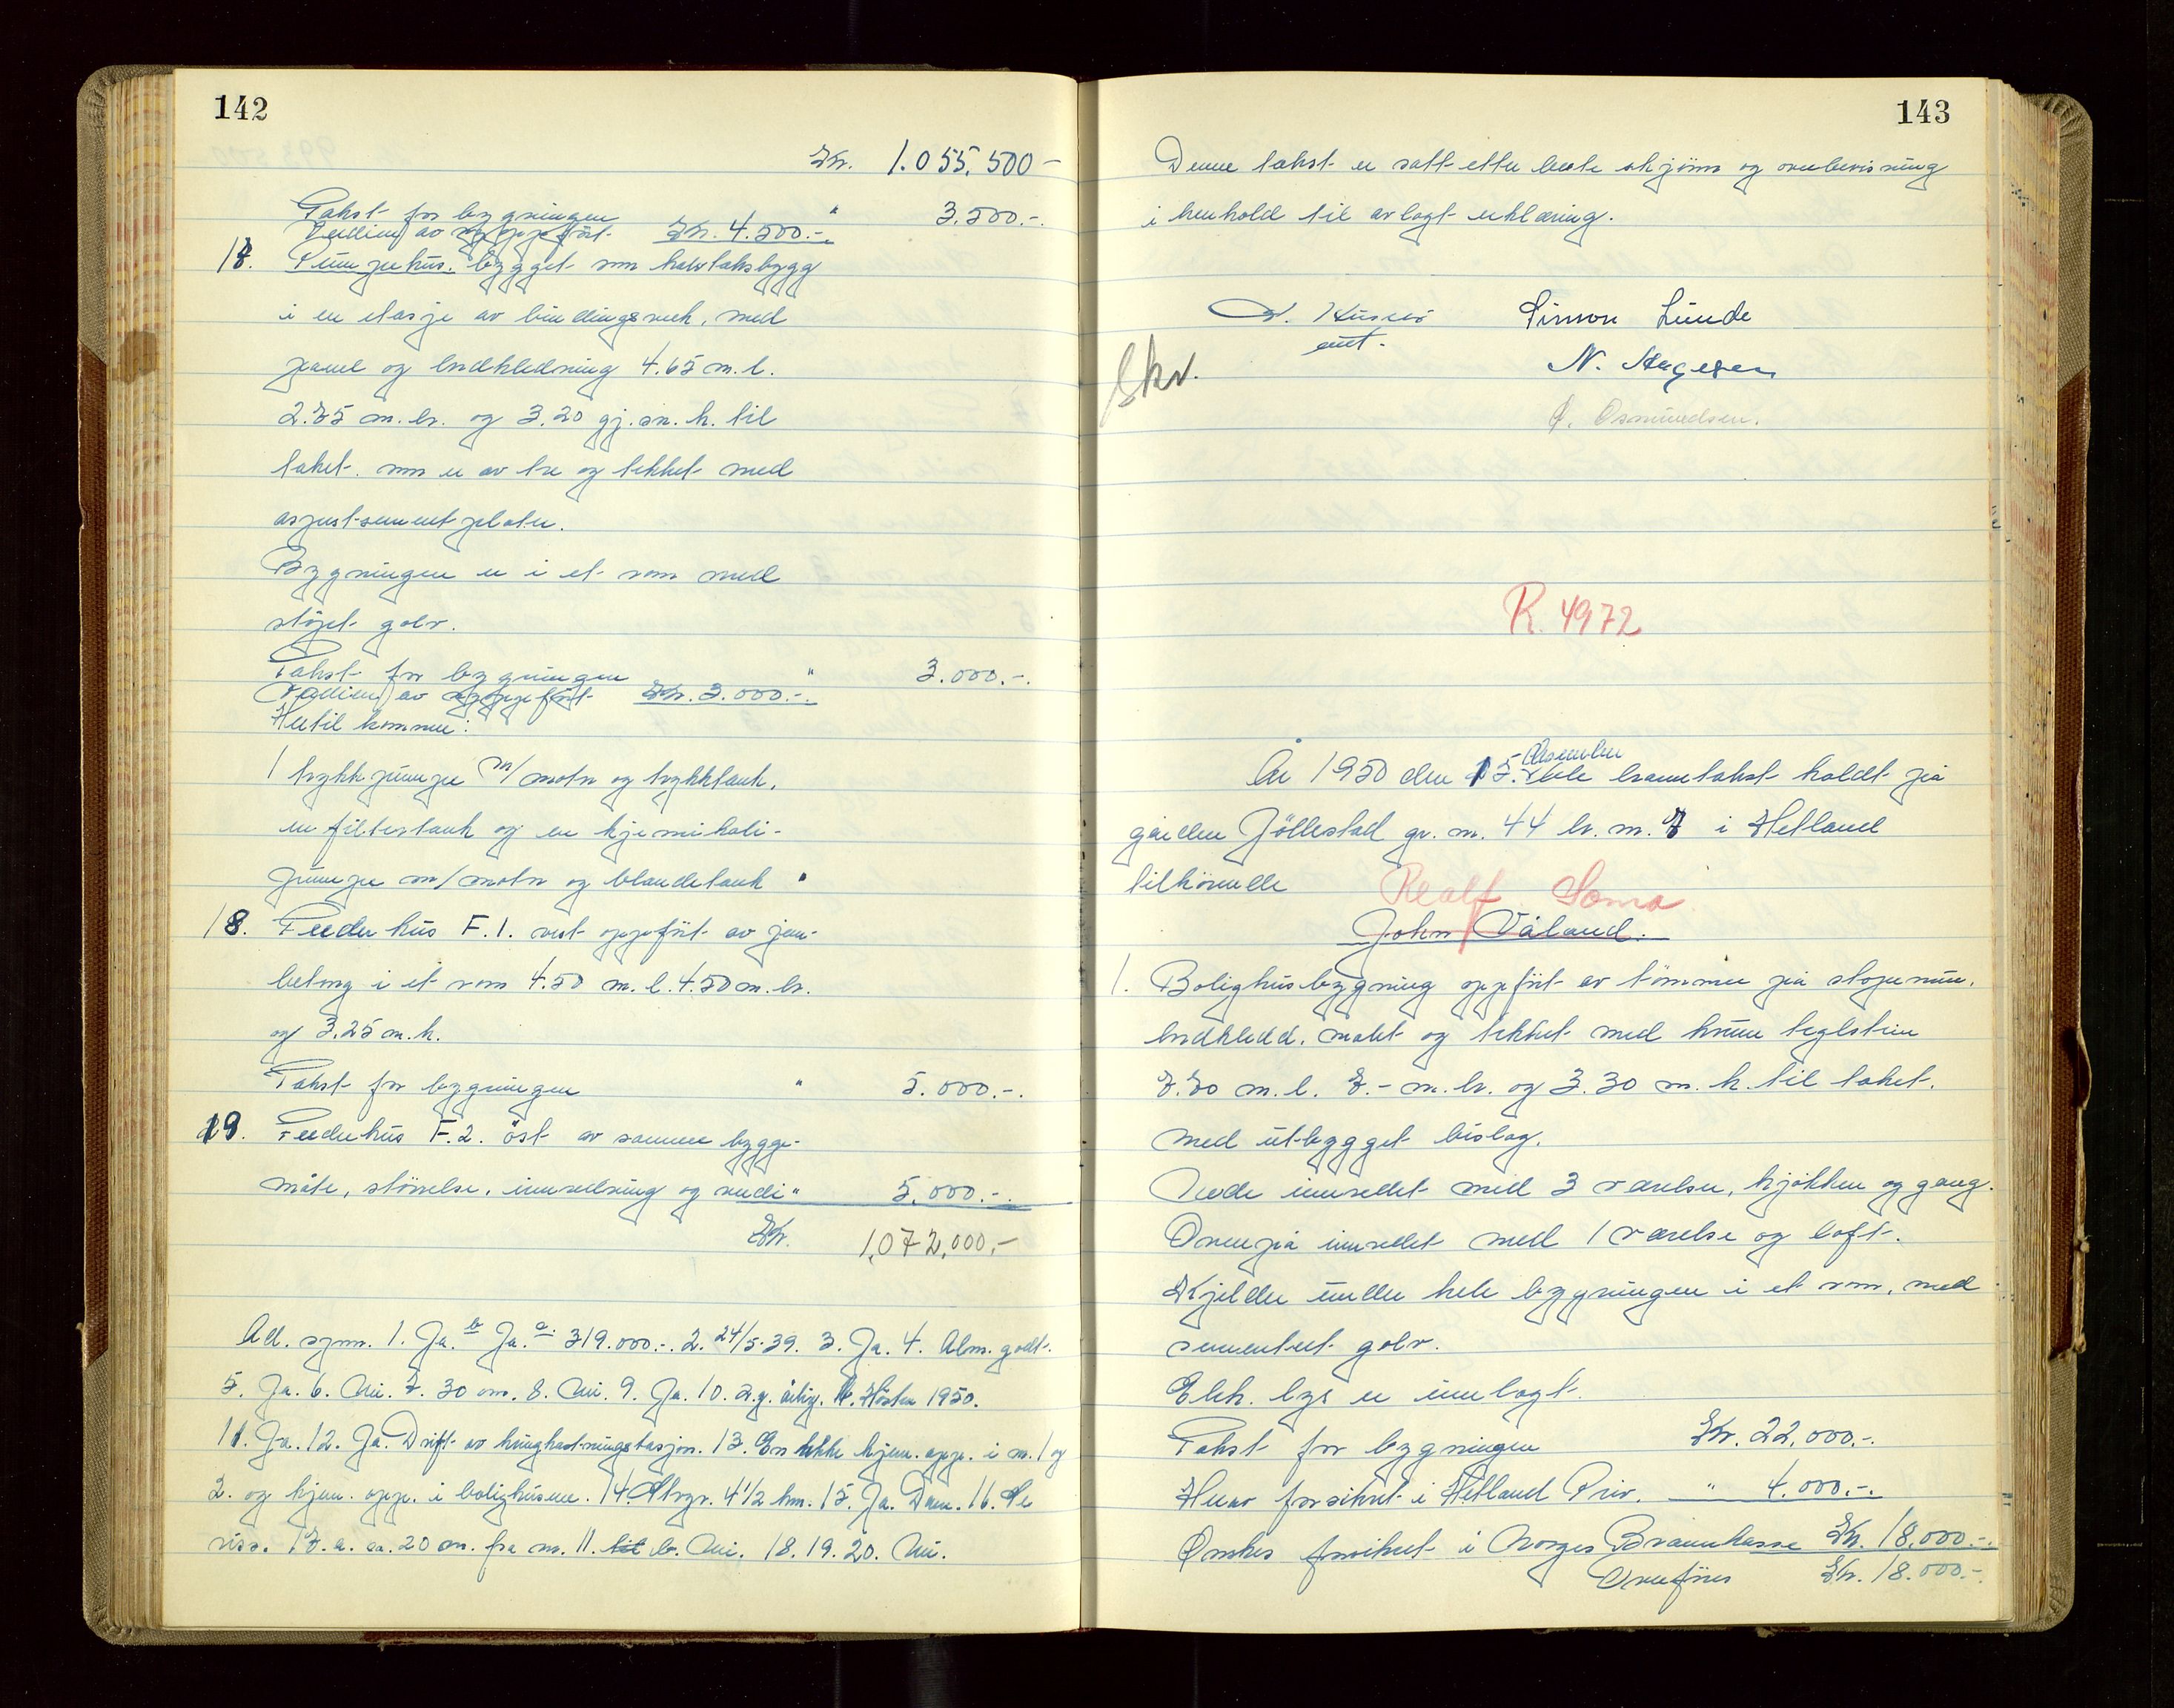 142
Kr. 1.055.500-
Takst for bygningen " 3.500.-.
Verdien av oppført Kr. 4.500.-.
17. Pumpehus. bygget som halvtaksbygg
i en etasje av bindingsverk, med
panel og bordkledning 4.65 m. l.
2.75 m. br. og 3.20 gj. sn. h. til
taket. som er av tre og tekket med
aspestsementplater.
Bygningen er i et rom med
støpt golv.
Takst for bygningen " 3.000.-.
Verdien av oppført Kr. 3.000.-.
Hertil kommer:
1 trykkpumpe m/motor og trykktank.
en filtertank og en kjemikali-
pumpe m/motor og blandetank "
18. Feederhus F.1. vest oppført av jern-
betong i et rom 4.50 m. l. 4.50 m. br.
og 3.25 m. h.
Takst for bygningen " 5.000.-.
19. Feederhus F.2. øst av samme bygge-
måte, størrelse, innredning og verdi " 5.000.-.
Kr. 1,072,000,-
Ad. spm. 1. Ja. b Ja. a. 319.000.-. 2. 24/5-39. 3. Ja. 4. Alm. godt.
5. Ja. 6. Nei. 7. 30 cm. 8. Nei. 9. Ja. 10. 2.g. årlig. Høsten 1950.
11. Ja. 12. Ja. Drift av kringkastningstasjon. 13. En kjem. app. i nr. 1 og
2. og kjem. app. i bolighusene. 14. 4 1/2 km. 15. Ja. Dam. 16. Se
riss. 17. a. ca. 20 m. fra nr. 11. b. Nei. 18. 19. 20. Nei.
143
Denne takst er satt etter beste skjønn og overbevisning
i henhold til avlagt erklæring.
Simon Lunde
N. Aagesen
O. Osmundsen.
Skv.
R. 4972
År 1950 den 15. desember ble branntakst holdt på
gården Jöllestad gr. nr. 44 br. nr. 7 i Hetland
tilhørende
Realf Soma
John Våland.
1. Bolighusbygning oppført av tømmer på støpemur.
bordkledd. malt og tekket med krum teglstein
7.70 m. l. 7.- m. br. og 3.30 m. h. til taket.
Med utbygget bislag.
Nede innredet med 3 værelser, kjøkken og gang.
Ovenpå innredet med 1 værelse og loft.
Kjeller under hele bygningen i et rom, med
sementert golv.
Elek. lys er innlagt.
Takst for bygningen Kr. 22,000.-.
Herav forsikret i Hetland Priv. " 4.000.-.
Ønskes forsikret i Norges Brannkasse Kr. 18,000.-.
Overføres Kr. 18.000.-.